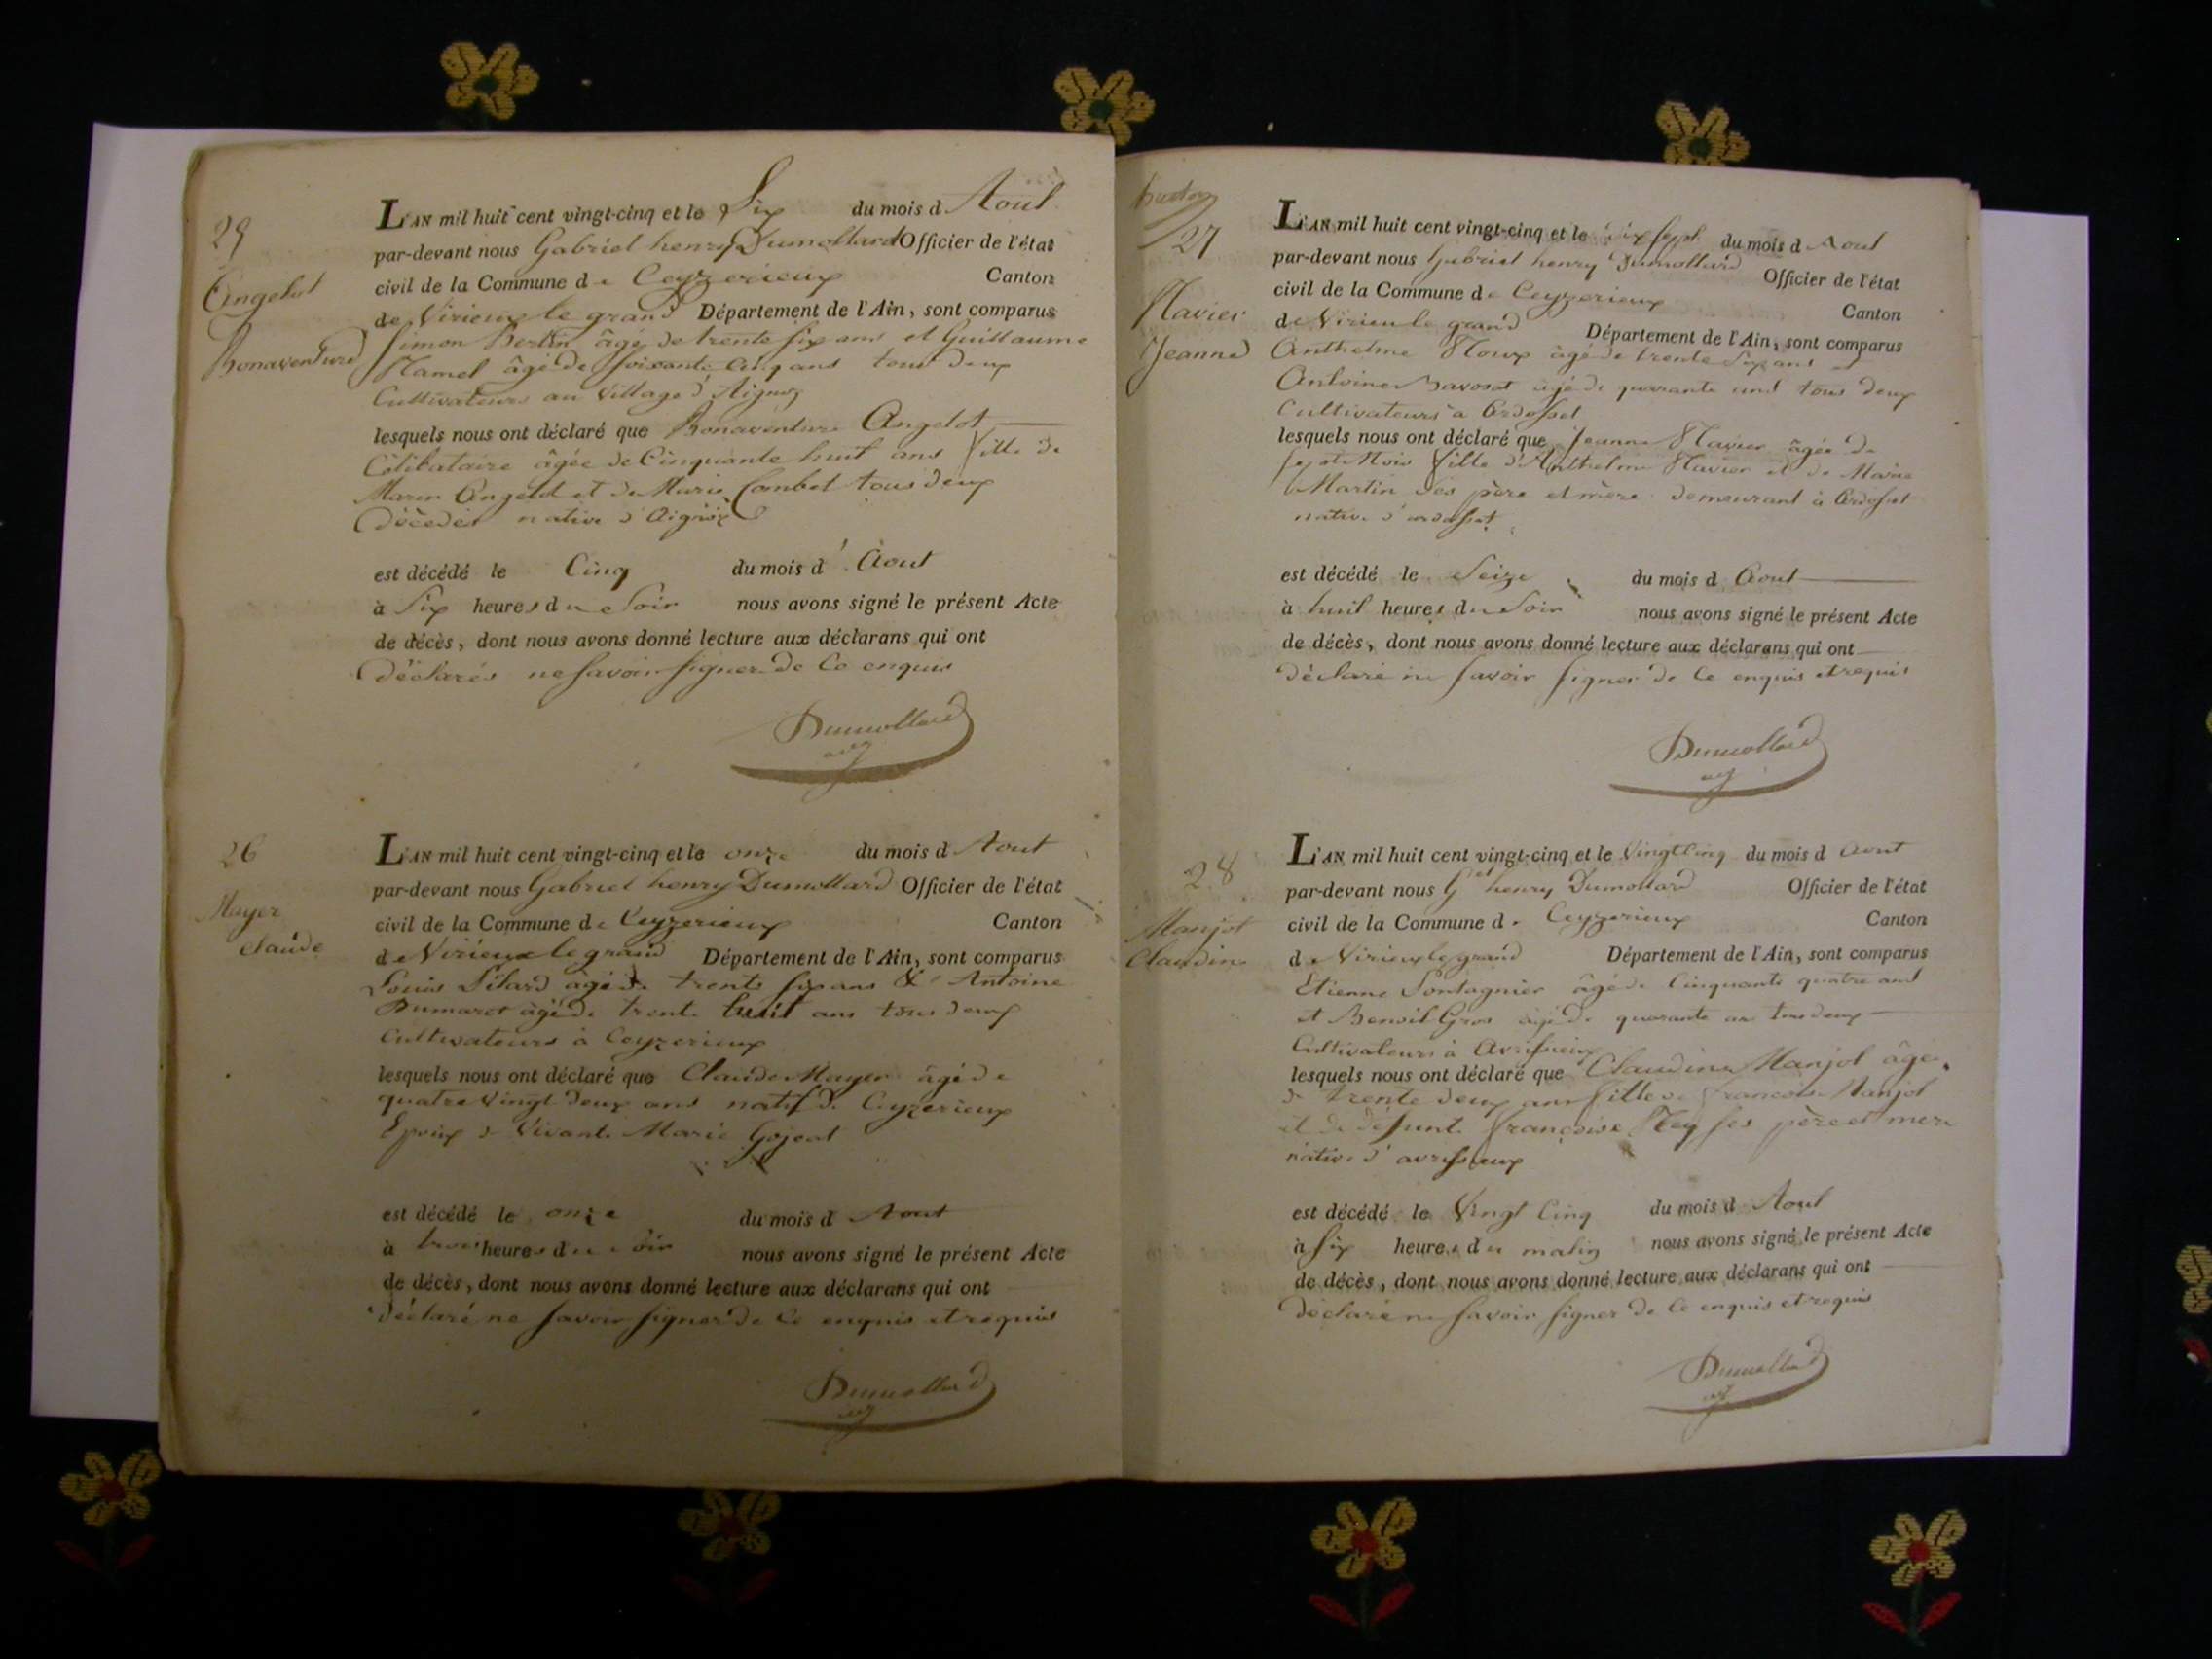 25
Angelot
Bonaventure
L'AN mil huit cent vingt-cinq et le Six du mois d Aout
par-devant nous Gabriel henry Dumollard Officier de l'état
civil de la Commune de Ceyzerieux Canton
de Virieux le grand Département de l'Ain, sont comparus
Simon Bertin âgé de trente six ans et Guillaume
Hamel âgé de soixante cinq ans tous deux
Cultivateurs au village d'Aignoz
lesquels nous ont déclaré que Bonaventure Angelot
Célibataire âgée de Cinquante huit ans fille de
Angelot et de Marie Combet tous deux
Décédés native d'Aignoz
est décédé le Cinq du mois d' Aout
à Six heures du Soir nous avons signé le présent Acte
de décès, dont nous avons donné lecture aux déclarans qui ont
Déclarés ne savoir signer de Ce enquis
Dumollard
26
Mayer
claude
L'AN mil huit cent vingt-cinq et le onze du mois d Aout
par-devant nous Gabriel henry Dumollard Officier de l'état
civil de la Commune de Ceyzerieux Canton
de Virieux le grand Département de l'Ain, sont comparus
Louis âgé de trente six ans & Antoine
Dumaret âgé de trente huit ans tous deux
Cultivateurs à Ceyzerieux
lesquels nous ont déclaré que Claude Mayer âgé de
quatre vingt deux ans natif de Ceyzerieux
Epoux de vivante Marie Gojeat
est décédé le onze du mois d Aout
à trois heures du soir nous avons signé le présent Acte
de décès, dont nous avons donné lecture aux déclarans qui ont
déclaré ne savoir signer de Ce enquis et requis
Dumollard
27
Navier
Jeanne
L'AN mil huit cent vingt-cinq et le dix sept du mois d Aout
par-devant nous Gabriel henry Dumollard Officier de l'état
civil de la Commune de Ceyzerieux Canton
de Virieu le grand Département de l'Ain, sont comparus
Anthelme Roux âgé de trente six ans et
Antoine Bavoset âgé de quarante ans tous deux
Cultivateurs à Ardosset
lesquels nous ont déclaré que Jeanne Navier âgée de
sept Mois fille d'Anthelme Navier et de Marie
Martin ses père et mère demeurant à Ardosset
native d'ardosset
est décédé le Seize du mois d Aout
à huit heures du Soir nous avons signé le présent Acte
de décès, dont nous avons donné lecture aux déclarans qui ont
déclaré ne savoir signer de Ce enquis et requis
Dumollard
28
Manjot
Claudine
L'AN mil huit cent vingt-cinq et le Vingt Cinq du mois d Aout
par-devant nous Gel henry Dumollard Officier de l'état
civil de la Commune de Ceyzerieux Canton
de Virieux le grand Département de l'Ain, sont comparus
Etienne Sontagnier âgé de Cinquante quatre ans
et Benoit Gros âgé de quarante an tous deux
Cultivateurs à Avrissieux
lesquels nous ont déclaré que Claudine Manjot âgé
de trente deux ans fille de françois Manjot
et de défunte françoise Rey ses père et mere
native d'avrissieux
est décédé le Vingt Cinq du mois d Aout
à six heures du matin nous avons signé le présent Acte
de décès, dont nous avons donné lecture aux déclarans qui ont
déclaré ne savoir signer de Ce enquis et requis
Dumollard